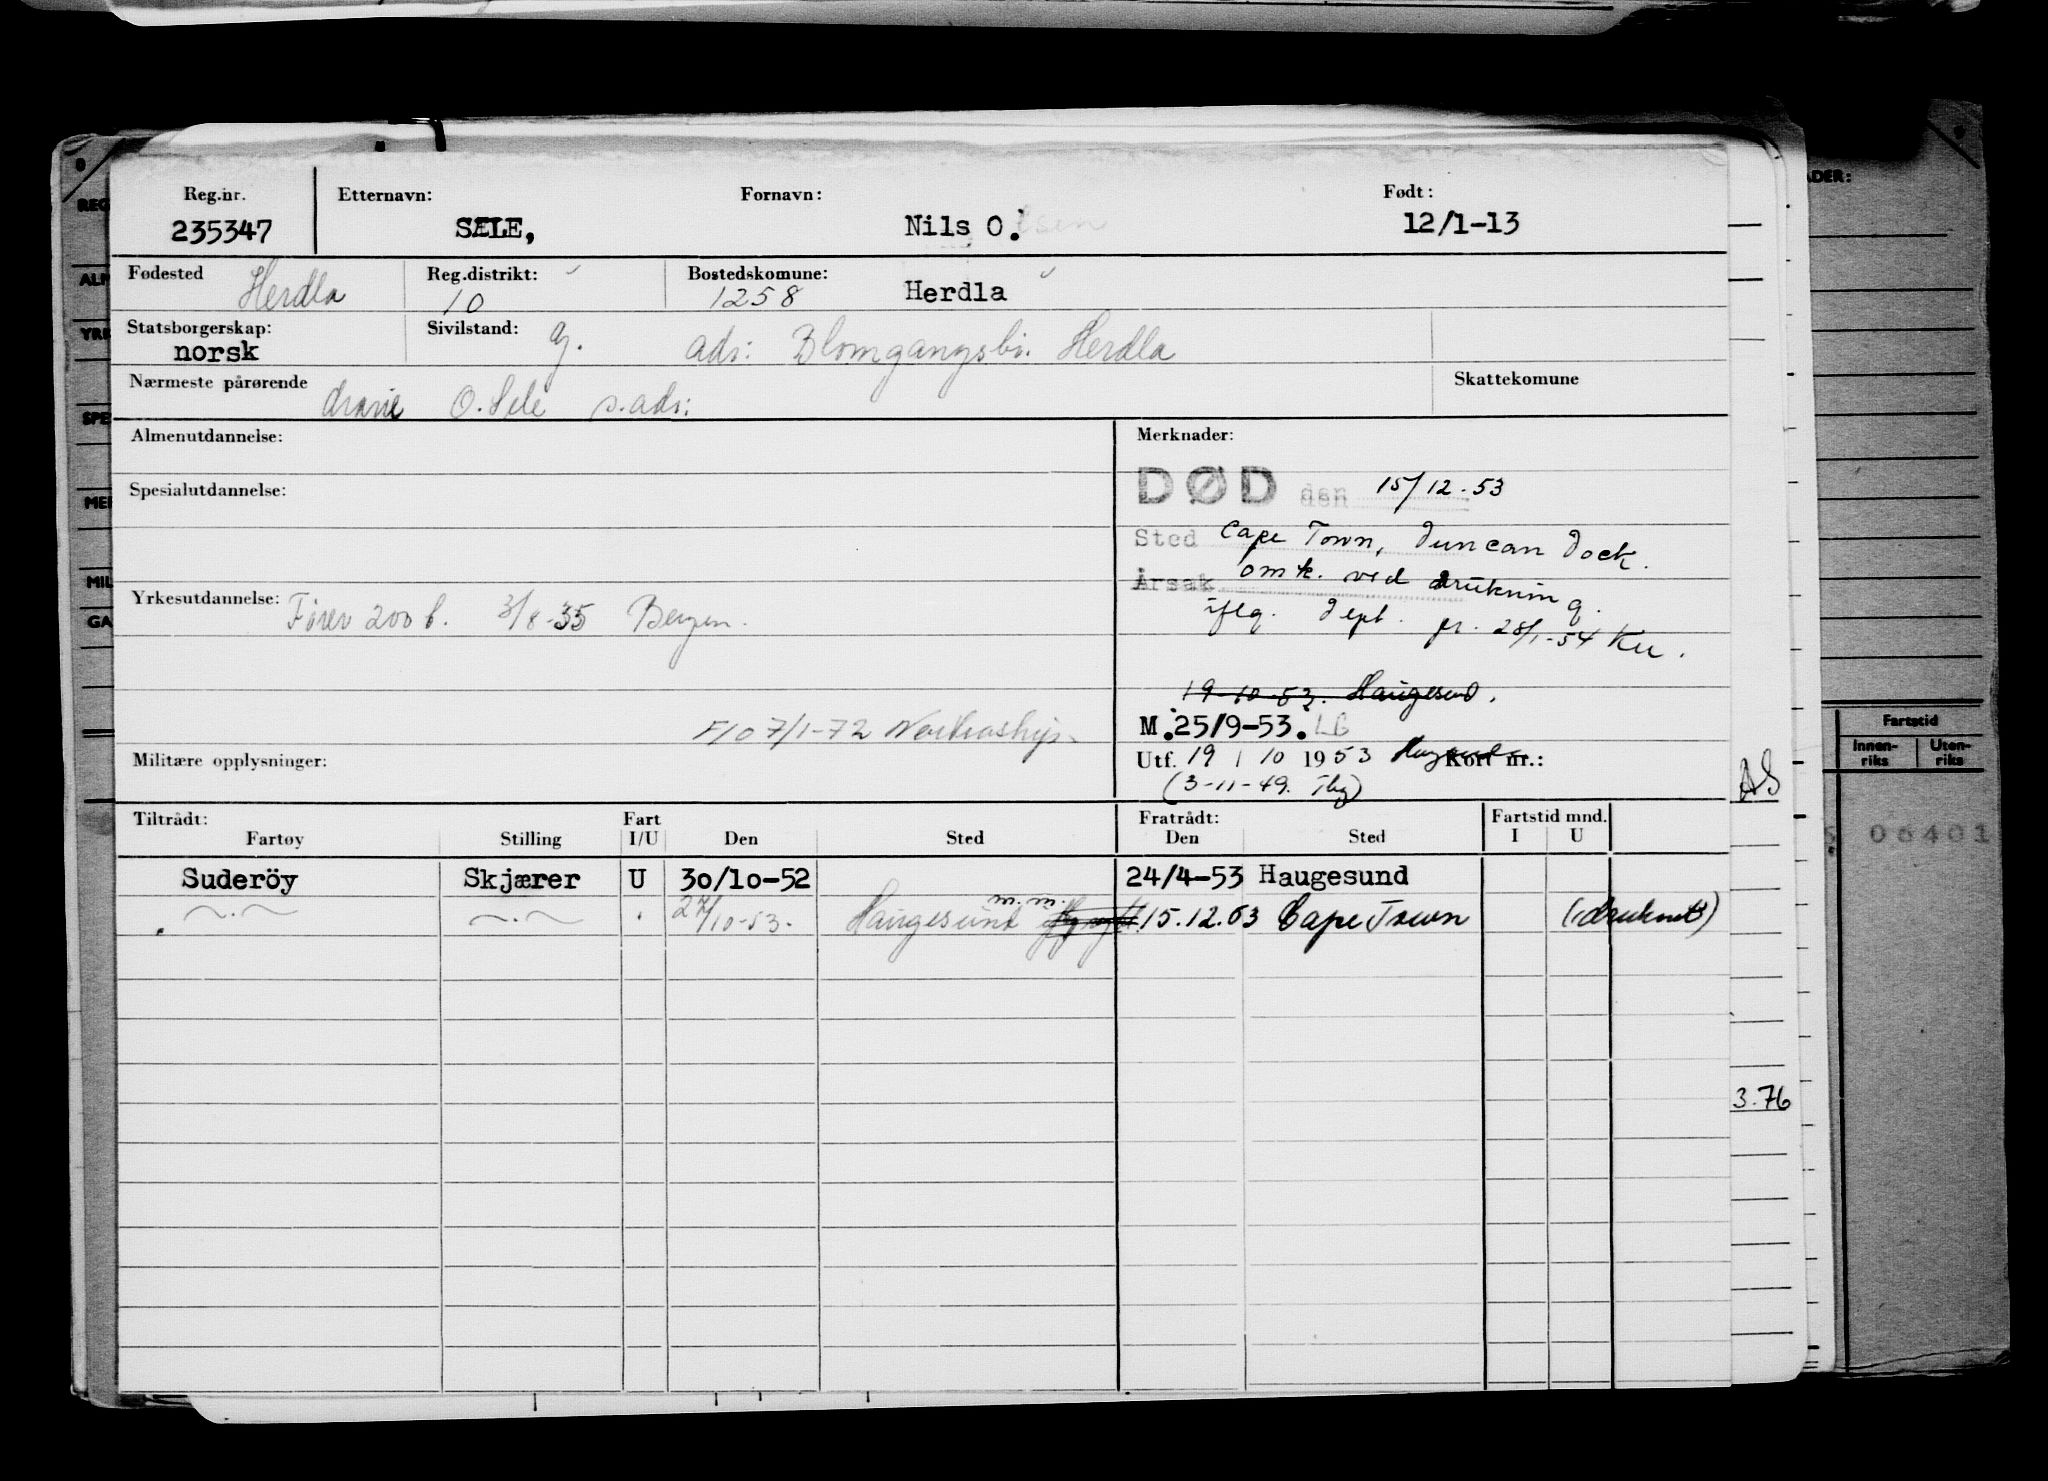 Reg.nr. Etternavn: Fornavn: Født:
235347 SÆLE, Nils O. 12/1-13
Fødested Herdla Reg.distrikt: 10 Bostedskomune: 1258 Herdla
Statsborgerskap: norsk Sivilstand: g. adr: Herdla
Nærmeste pårørende O. Sele s. adr: Skattekomune
Almenutdannelse: Merknader:
DØD den 15/12-53
Spesialutdannelse:
Sted Cape Town, Duncan Dock.
Årsak omk. ved drukning.
Yrkesutdannelse: Fører 200 b. 3/8-35 Bergen.
iflg. Dept. 28/1-54
19-10-53. Haugesund.
7/1-72 Nortraship.
M.25/9-53. LB
Militære opplysninger: Utf. 19 / 10 1953 Kort nr.:
(3-11-49.
Tiltrådt: Fart Fratrådt: Fartstid mnd.
Fartøy Stilling I/U Den Sted Den Sted I U
Suderöy Skjærer U 30/10-52 24/4-53 Haugesund
m.m.
27/10-53. Haugesund 15.12.53 Cape Town (druknet)
ADER:
REG
ALM
YRK
SPE
MER
MIL
GA
Fartstid
Innen-riks Uten-riks
06401
AS
3.76